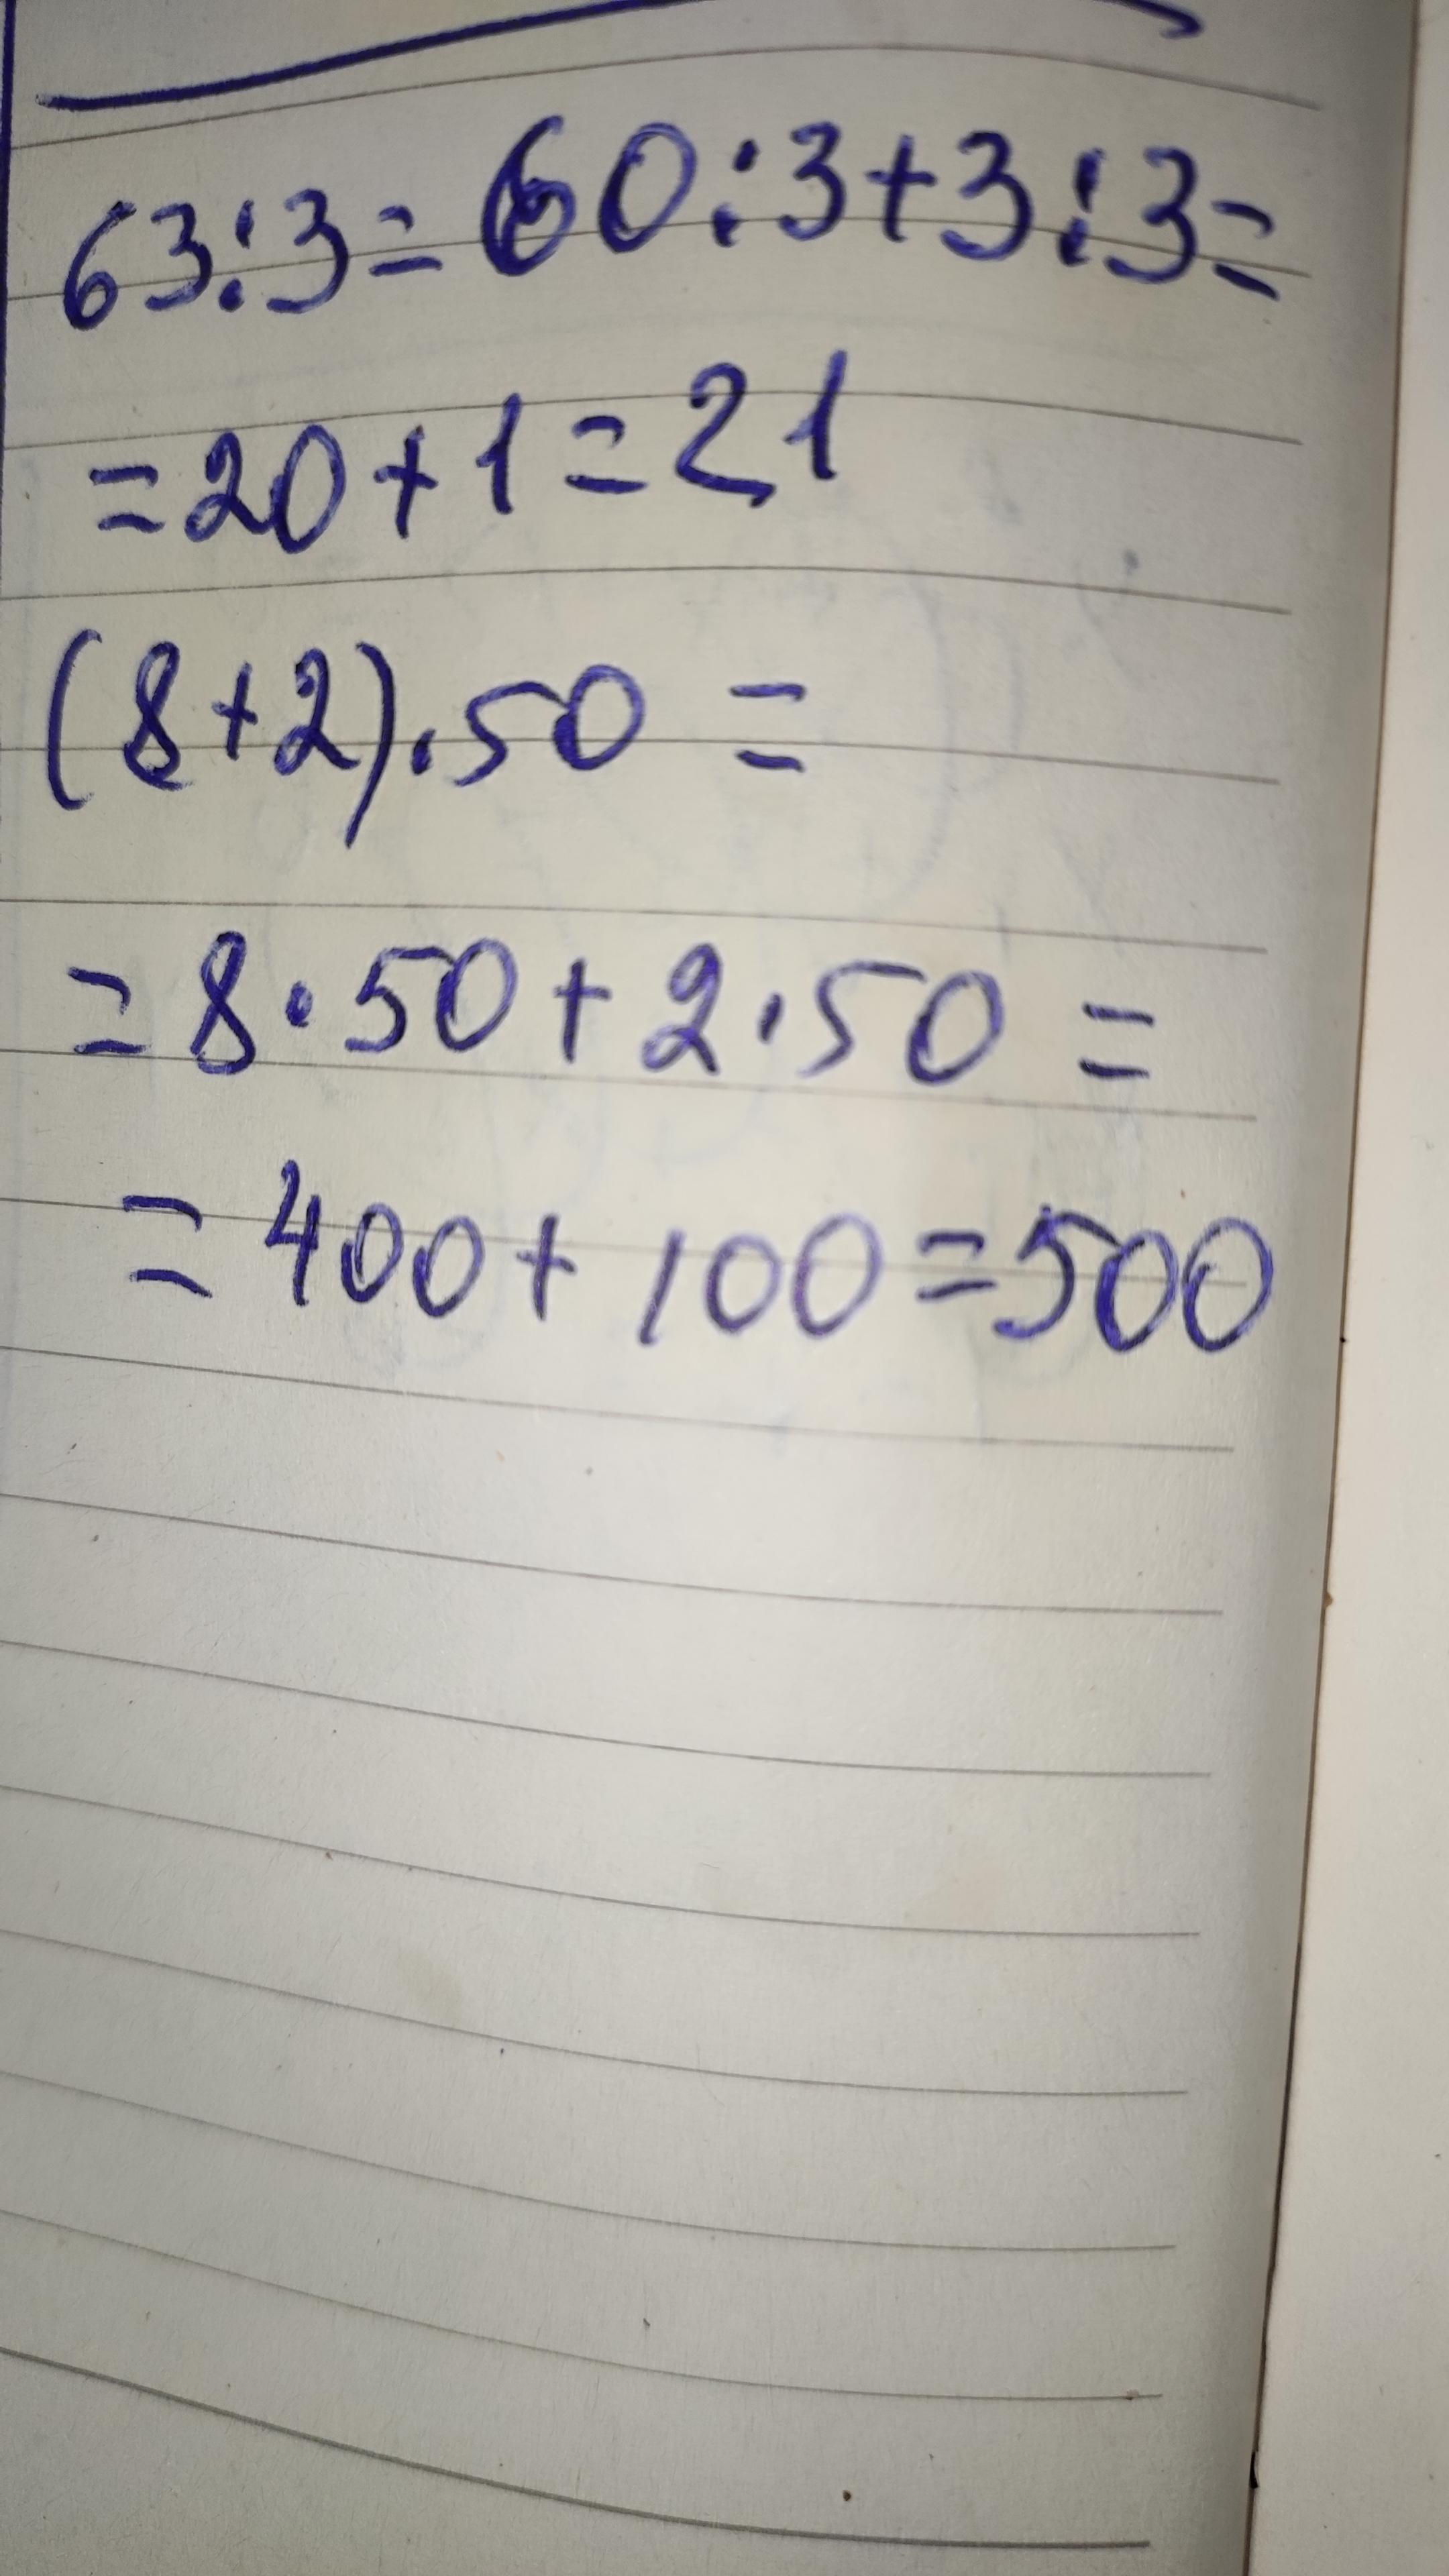 63:3=60:3+3:3=
=20+1=21
(8+2).50=
=8·50+2·50=
=400+100=500